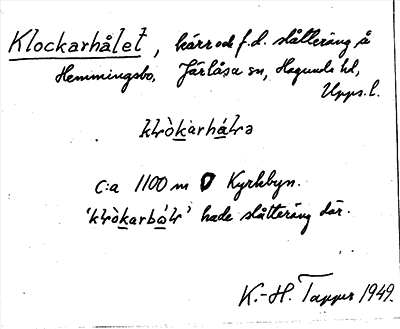 Klockarhålet, kärr och f.d. slåtteräng å
Hemmingsbo, Järlåsa sn, Hagunda hd,
Upps. l.
c:a 1100 m O Kyrkbyn.
hade slåtteräng där.
K.-H. Tapper 1949.